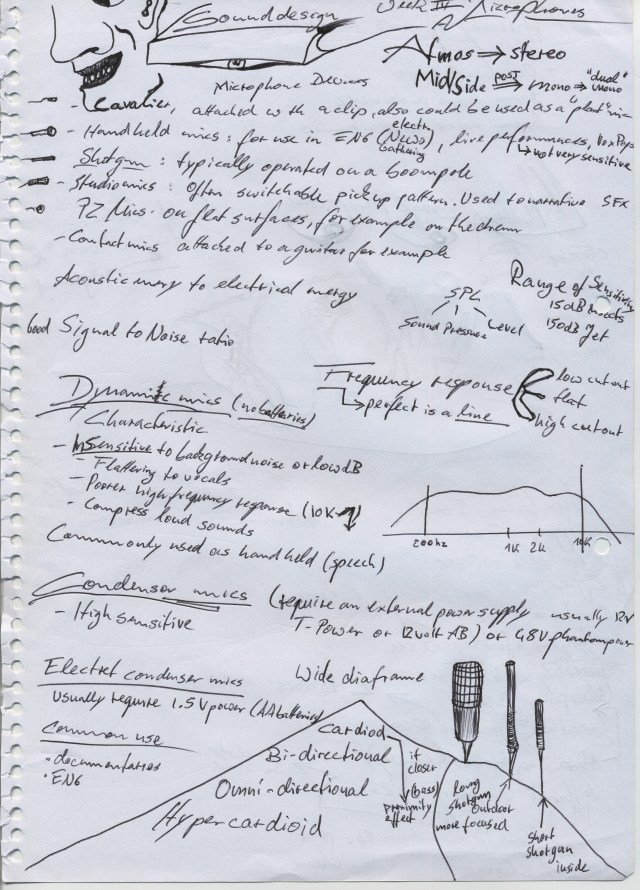 Sound design
Week III
Microphones
Atmos → stereo
Mid/Side POST → mono → "dual" mono
Microphone Devices
- Lavalier, attached with a clip, also could be used as a "plant" mic
- Handheld mics: for use in ENG (electr. News Gathering), live performances, Vox Pops
→ not very sensitive
- Shotgun: typically operated on a boompole
- Studiomics: Often switchable pick up pattern. Used to narrative SFX
- PZ Mics- on flat surfaces, for example on the drum
- Contactmics attached to a guitar for example
Acoustic energy to electrical energy
SPL
Sound Pressure Level
Range of Sensitivity
150dB Jet
Good Signal to Noise ratio
Frequency response
→ perfect is a line
low cut out
flat
high cut out
Dynamic mics (no batteries)
Characteristic
- Insensitive to background noise or low dB
- Flattering to vocals
- Poorer high frequency response (10K
- Compress loud sounds
Commonly used as handheld (speech)
200hz 1K 2K 10K
Condenser mics (require an external power supply usually 12V
T-Power or 12volt AB) or 48V phantompower
- High sensitive
Electret condenser mics
usually require 1.5V power (AA batteries)
Common use
· documentaries
· ENG
Wide diaframe
Cardiod
Bi-directional
Omni-directional
Hypercardioid
if closer
(bass)
proximity effect
long shotgun outdoor
more focused
short shotgun
inside